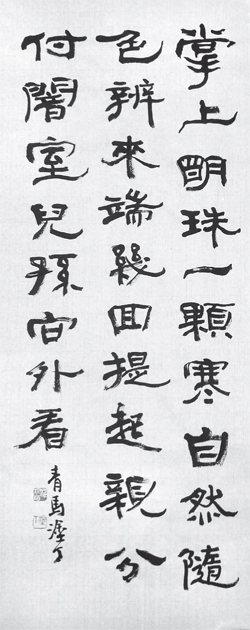 掌上明珠一顆寒自然隨
色辨來端幾回提起親分
付闇室兒孫向外看
青馬